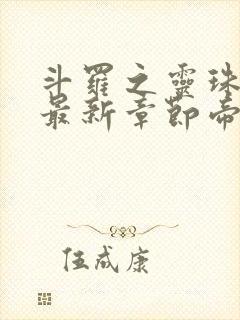 斗羅之靈珠
最新章節帝
伍成康